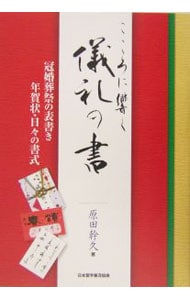 こころに響く
儀礼の書
冠婚葬祭の表書き
年賀状・日々の書式
原田幹久 著
日本習字普及協会